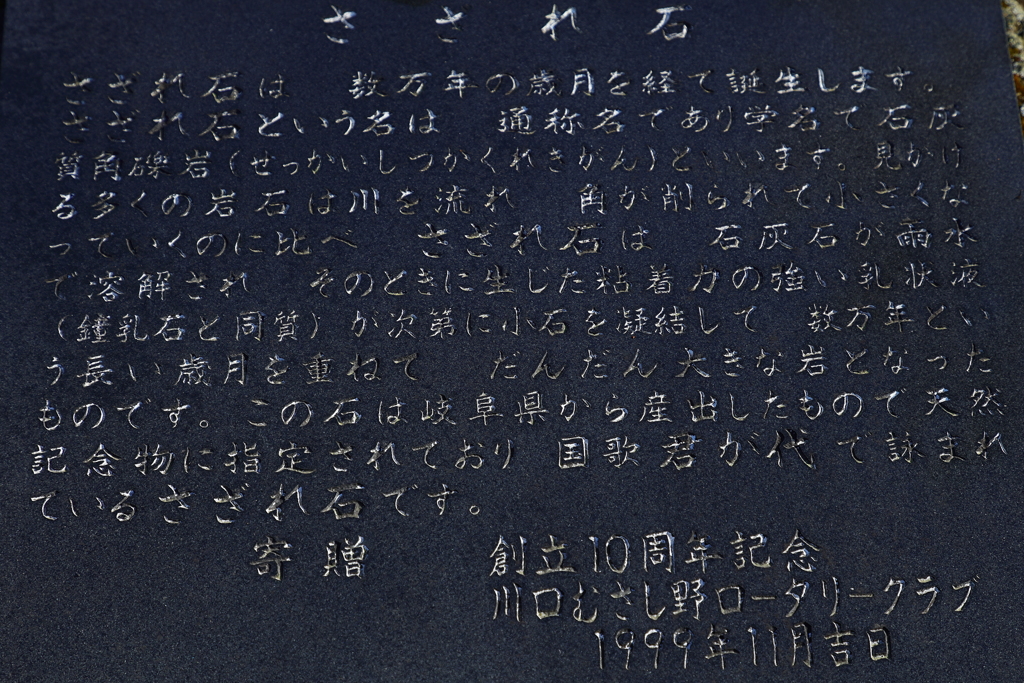 さざれ石
さざれ石は　数万年の歳月を経て誕生します。
さざれ石という名は　通称名であり学名で石灰
質角礫岩(せっかいしつかくれきがん)といいます。見かけ
る多くの岩石は川を流れ　角が削られて小さくな
っていくのに比べ　さざれ石は　石灰石が雨水
で溶解され　そのときに生じた粘着力の強い乳状液
(鐘乳石と同質)が次第に小石を凝結して　数万年とい
う長い歳月を重ねて　だんだん大きな岩となった
ものです。この石は岐阜県から産出したもので天然
記念物に指定されており　国歌君が代で詠まれ
ているさざれ石です。
寄贈　創立10周年記念
川口むさし野ロータリークラブ
1999年11月吉日